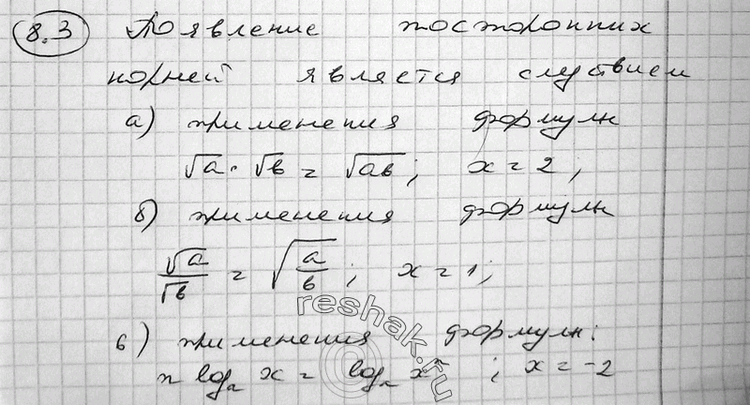 8.3 Появление посторонних
корней является следствием
а) применения формулы
√a · √b = √ab; x = 2;
б) применения формулы
√a/√b = √(a/b); x = 1;
в) применения формулы:
n logₐ x = logₐ xⁿ; x = -2
reshak.ru